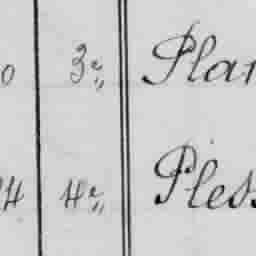 0 3e Plan
4 4e Pless